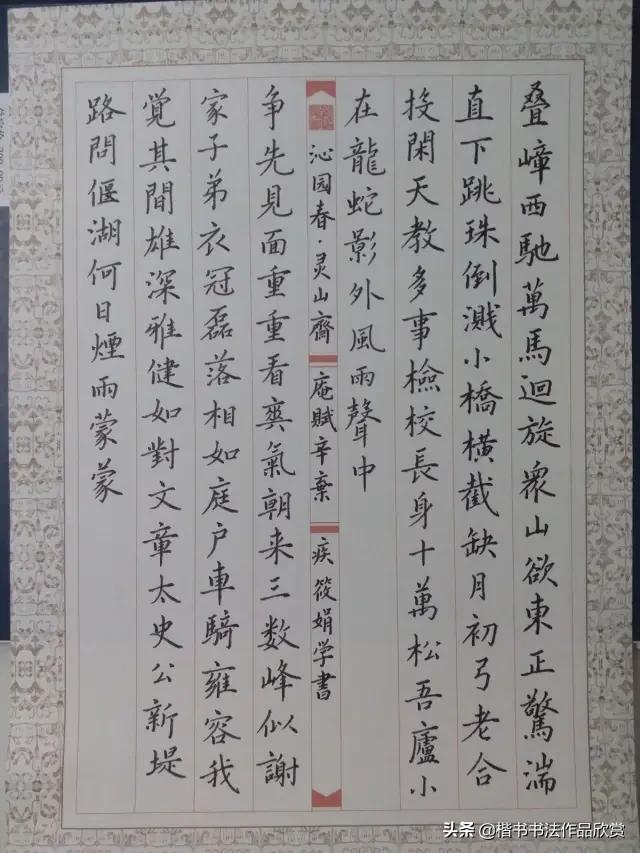 叠嶂西馳萬馬迴旋眾山欲東正驚湍
直下跳珠倒濺小橋横截缺月初弓老合
投閑天教多事檢校長身十萬松吾廬小
在龍蛇影外風雨聲中
沁园春·灵山齊庵賦辛棄疾筱娟学書
争先見面重重看爽氣朝来三数峰似謝
家子弟衣冠磊落相如庭户車騎雍容我
覺其間雄深雅健如對文章太史公新堤
路問偃湖何日煙雨蒙蒙
头条 @楷书书法作品欣赏